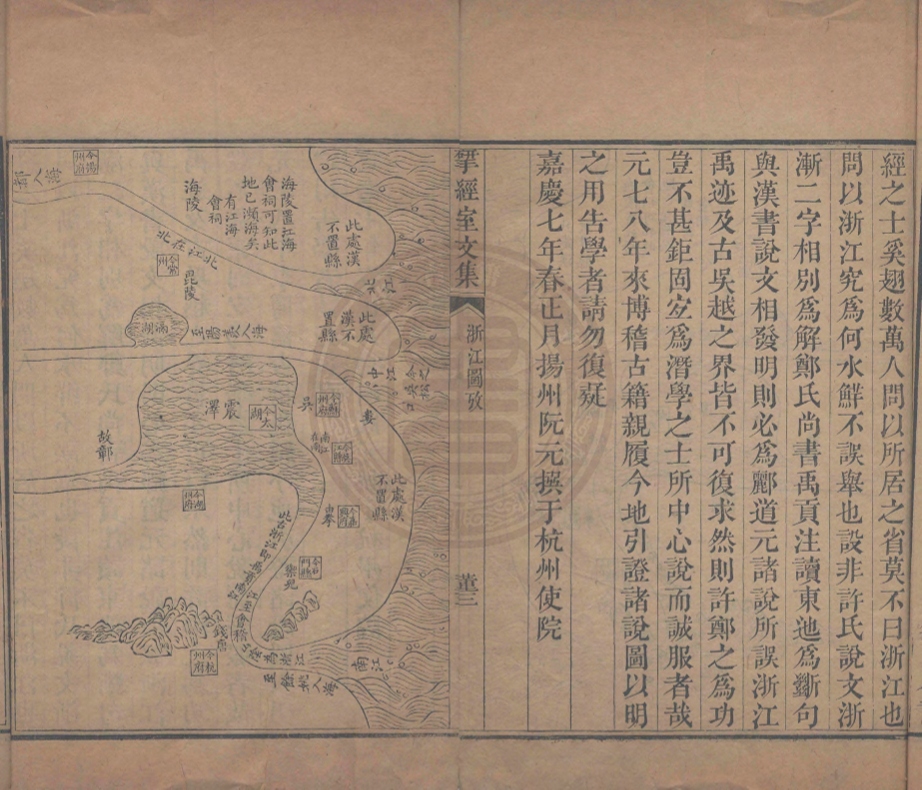 經之士奚翅數萬人問以所居之省莫不曰浙江也
問以浙江究爲何水鮮不誤舉也設非許氏說文浙
漸二字相別爲解鄭氏尚書禹貢注讀東迆爲斷句
與漢書說文相發明則必爲酈道元諸說所誤浙江
禹迹及古吳越之界皆不可復求然則許鄭之爲功
豈不甚鉅固宜爲潛學之士所中心說而誠服者哉
元七八年來博稽古籍親履今地引證諸說圖以明
之用告學者請勿復疑
嘉慶七年春正月揚州阮元撰于杭州使院
揅經室文集
浙江圖攷
此處漢
不置縣
海陵置江海
會祠可知此
地已瀕海矣
有江海
會祠
海陵
今揚
州府
北江在北
毘陵
今常
州
江北
此處
漢不
置縣
江中
滆湖
震澤
今太
湖
吳
今蘇
州府
婁
南江
在南
今吳
江縣
此處漢
不置縣
故鄣
今湖
州府
由拳
今嘉
興府
禦兒
今石
門縣
錢唐
今杭
州府
江南